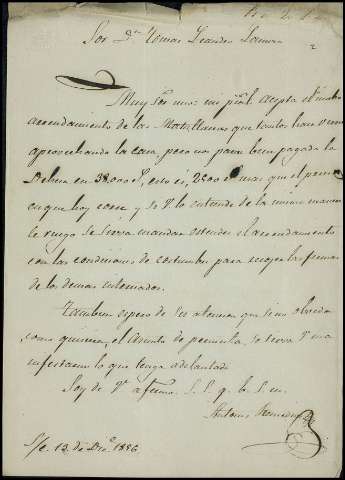 Sor Dn Tomas Leandro
Muy Sor mio: mi pral. acepta el nuebo
arrendamiento de las que tantos han venido
aprovechando la caza, pero no para bien pagada la
Dehesa en 38.000 rs, esto es, 2500 mas que el precio
en que hoy corre y si V. lo entiende de la misma manera
le ruego se sirva mandar estender el arrendamiento
con las condiciones de costumbre para recoger las firmas
de los demas interesados.
Tambien espero de su atencion que si no olvida
como quiera, el asunto de se sirva V. ma
nifestarme lo que tenga adelantado
Soy de V. afmo. S. S. q. b. S. m.
Antonio
S/c. 13 de Dbe. 1886